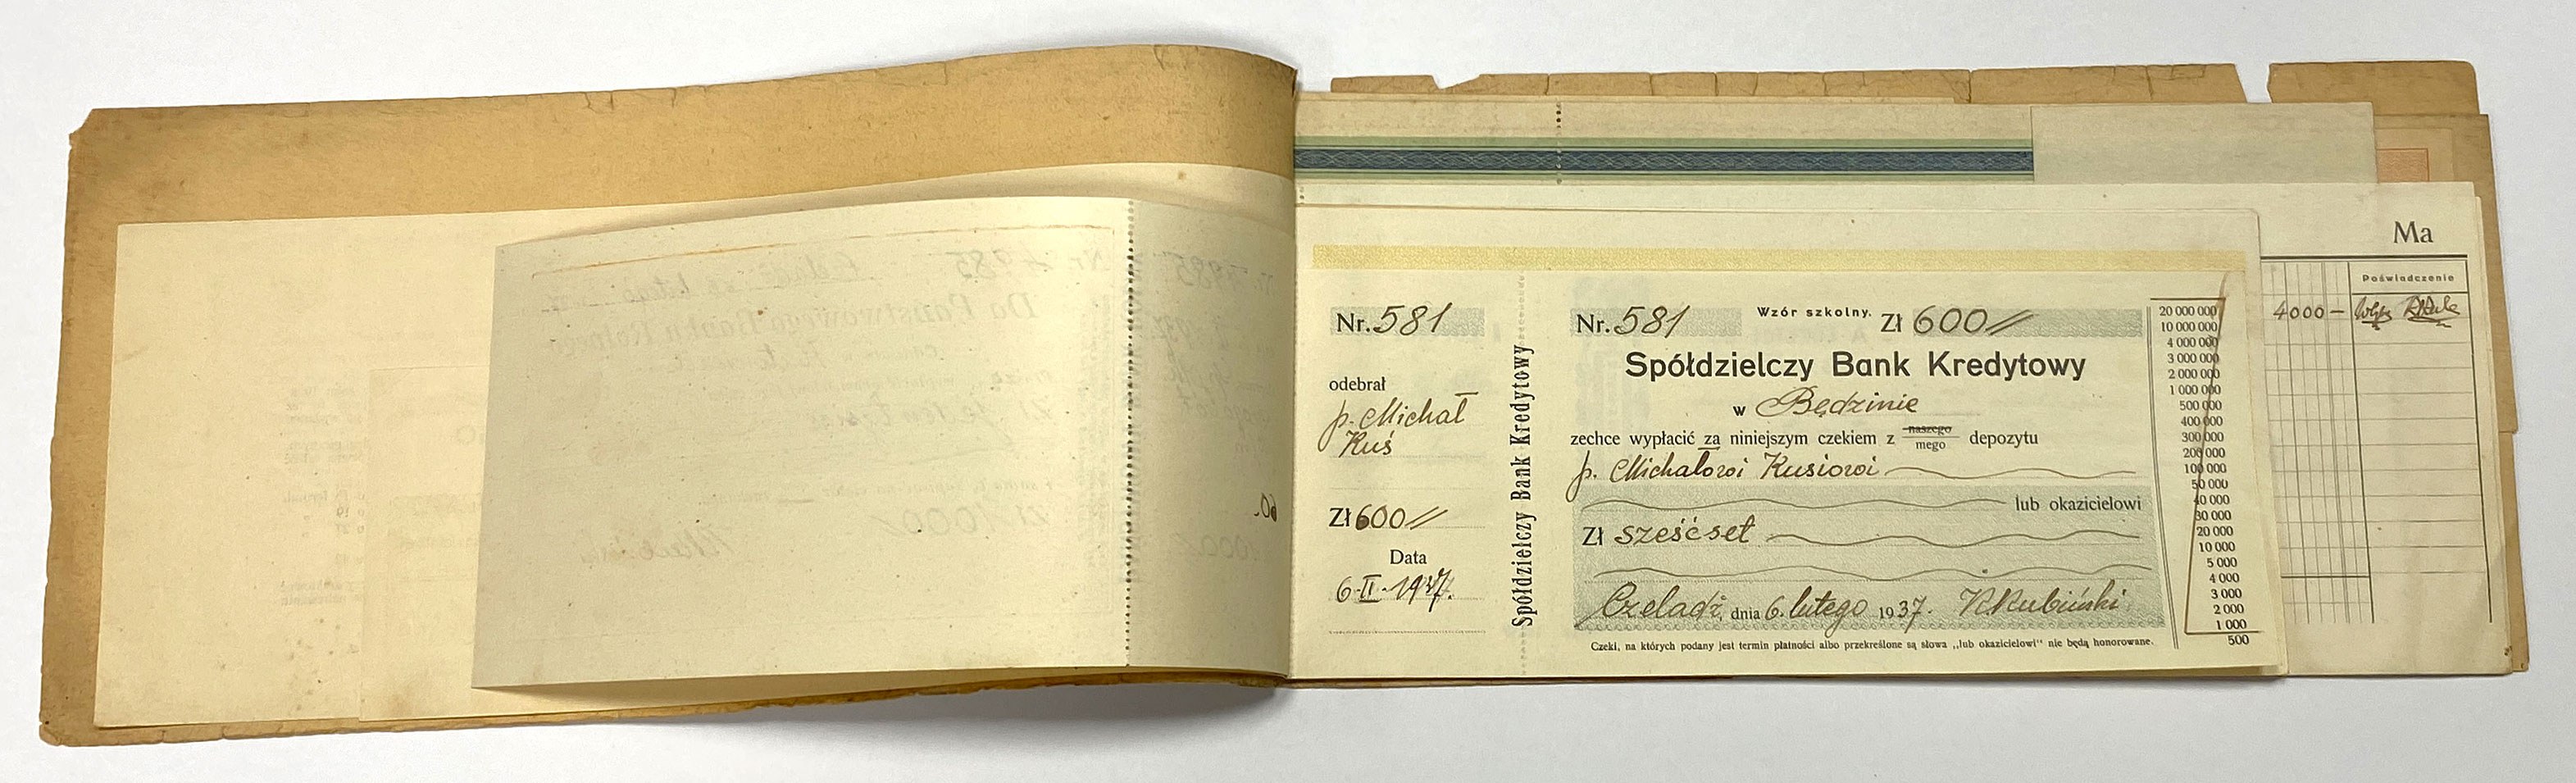 Nr. 581
odebrał
p. Michał
Kuś
Zł 600//
Data
6-II-1937.
Spółdzielczy Bank Kredytowy
Nr. 581 Wzór szkolny. Zł 600//
Spółdzielczy Bank Kredytowy
w Będzinie
zechce wypłacić za niniejszym czekiem z naszego mego depozytu
p. Michałowi Kusiowi
lub okazicielowi
Zł sześćset
Czeladź, dnia 6. lutego 1937. KKubiński
Czeki, na których podany jest termin płatności albo przekreślone są słowa „lub okazicielowi" nie będą honorowane.
20 000 000
10 000 000
4 000 000
3 000 000
2 000 000
1 000 000
500 000
400 000
300 000
200 000
100 000
50 000
40 000
30 000
20 000
10 000
5 000
4 000
3 000
2 000
1 000
500
Ma
Poświadczenie
4000 —
60.